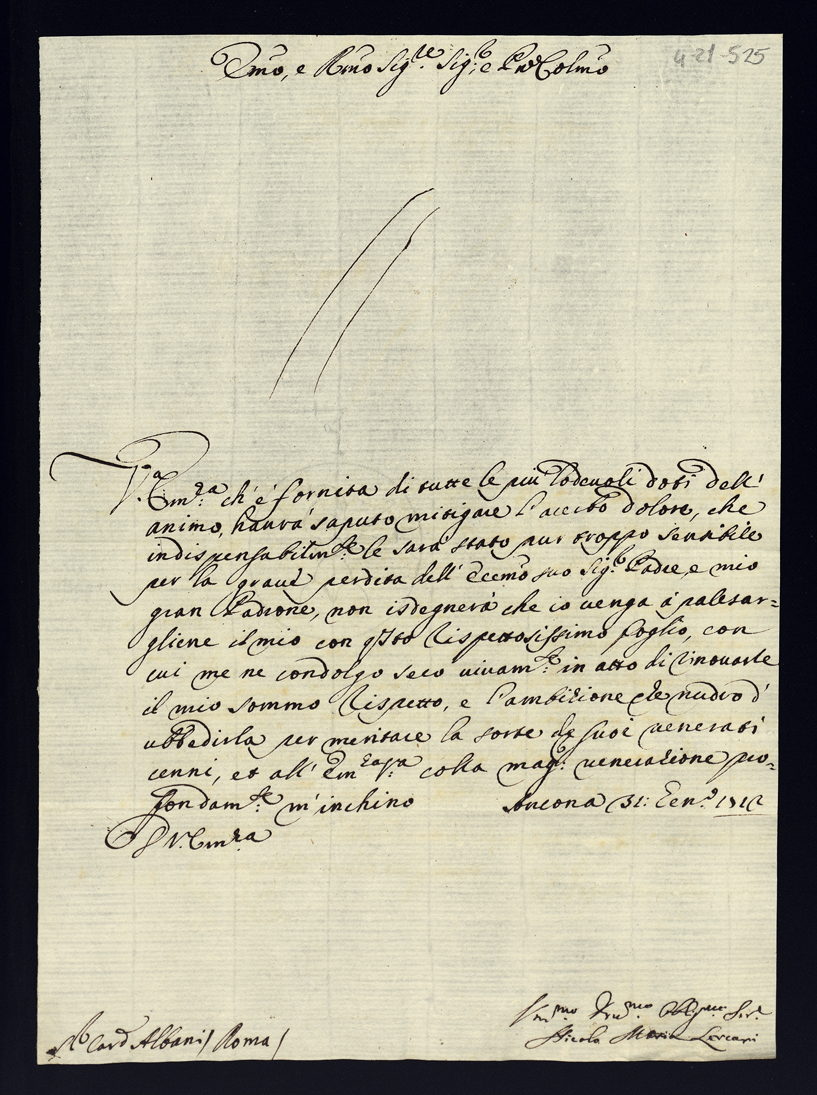 Emo, e Rmo Sig.re Sig.r e Pron Colmo
4-21-525
V.a Em.za ch'é fornita di tutte le piu lodevoli doti dell'
animo, haurá saputo mitigare l'acerbo dolore, che
indispensabilm.te le sará stato pur troppo sensibile
per la grave perdita dell' Eccmo suo Sig.r Padre, e mio
gran Padrone, non isdegnerá che io venga á palesar=
gliene il mio con qsto rispettosissimo foglio, con
cui me ne condolgo seco vivam.te in atto di rinovarle
il mio sommo rispetto, e l'ambizione che nudro d'
ubbedirla per meritare la sorte de suoi venerati
cenni, et all' Em.za V.ra colla mag.r venerazione pro=
fondam.te m'inchino Ancona 31: Gen.o 1712
D V. Em.za
S.r Card Albani / Roma /
Um.mo Obblig.mo Ser.e
Nicola Maria Lercari